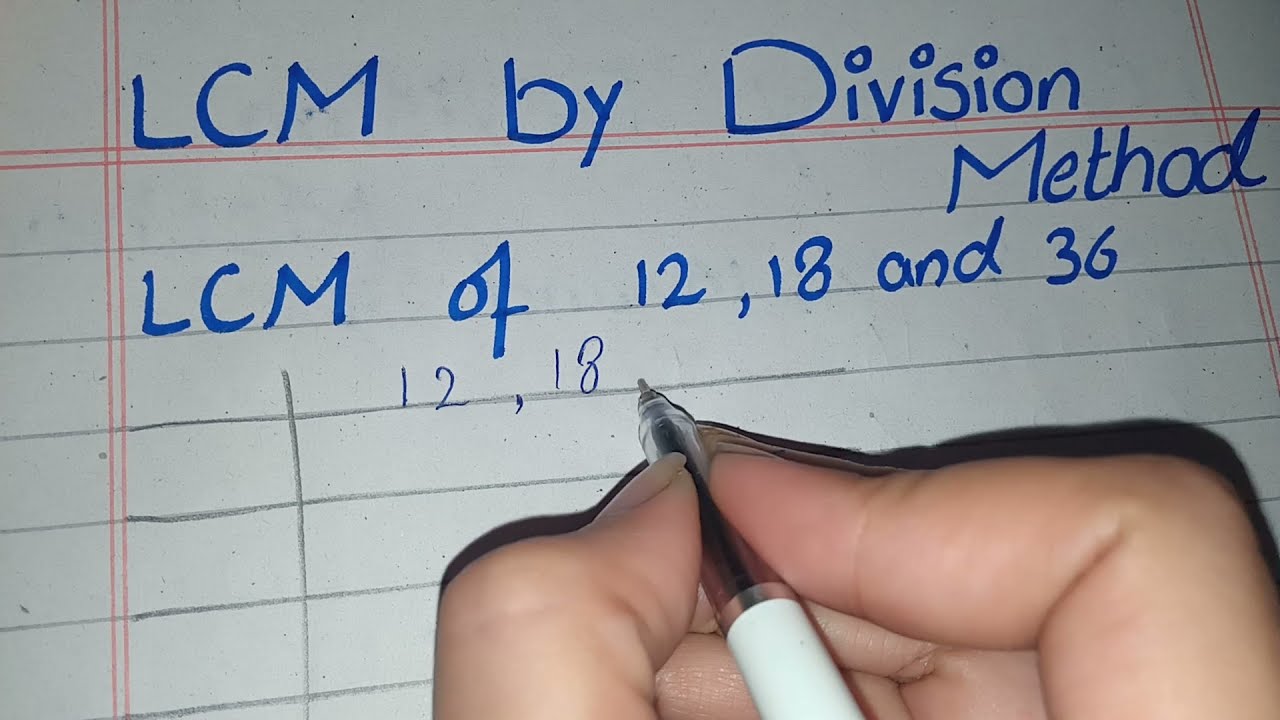 LCM by Division
Method
LCM of 12, 18 and 36
12, 18